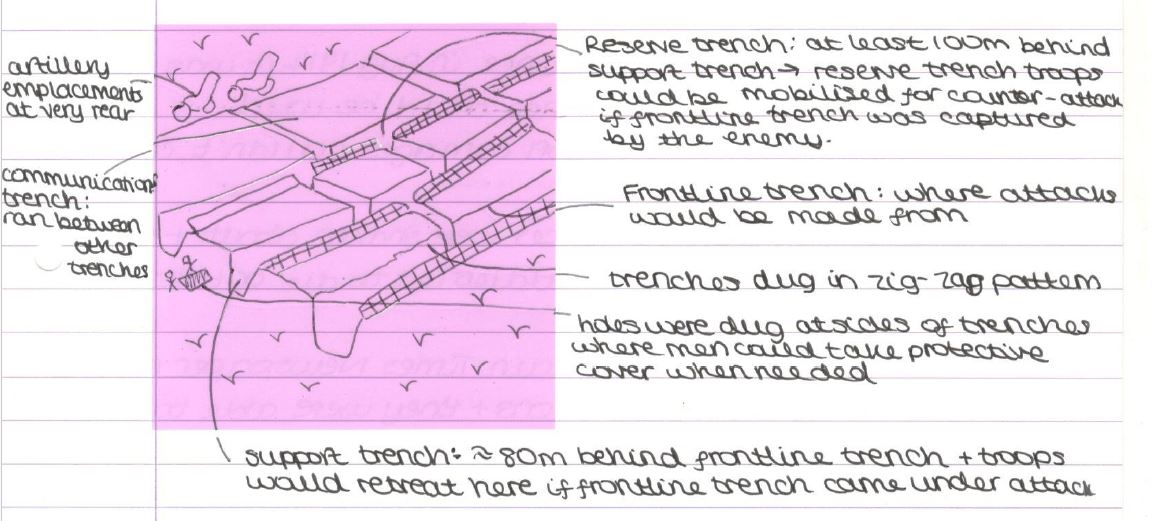 artillery
emplacements
at very rear
communication
trench:
ran between
other
trenches
Reserve trench: at least 100m behind
support trench → reserve trench troops
could be mobilised for counter-attack
if frontline trench was captured
by the enemy.
Frontline trench: where attacks
would be made from
trenches dug in zig-zag pattern
holes were dug at sides of trenches
where men could take protective
cover when needed
support trench: ≈ 80m behind frontline trench + troops
would retreat here if frontline trench came under attack